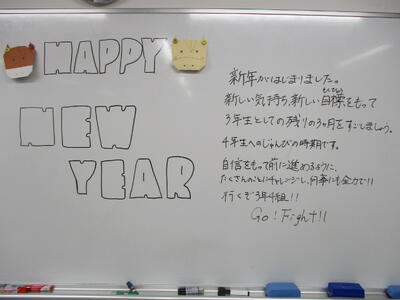 HAPPY
NEW
YEAR
新年がはじまりました。
新しい気持ち、新しい目標をもって
3年生としての残りの3ヶ月をすごしましょう。
4年生へのじゅんびの時期です。
自信をもって前に進めるように、
たくさんのことにチャレンジし、何事にも全力で!!
行くぞ3年4組!!
Go! Fight!!